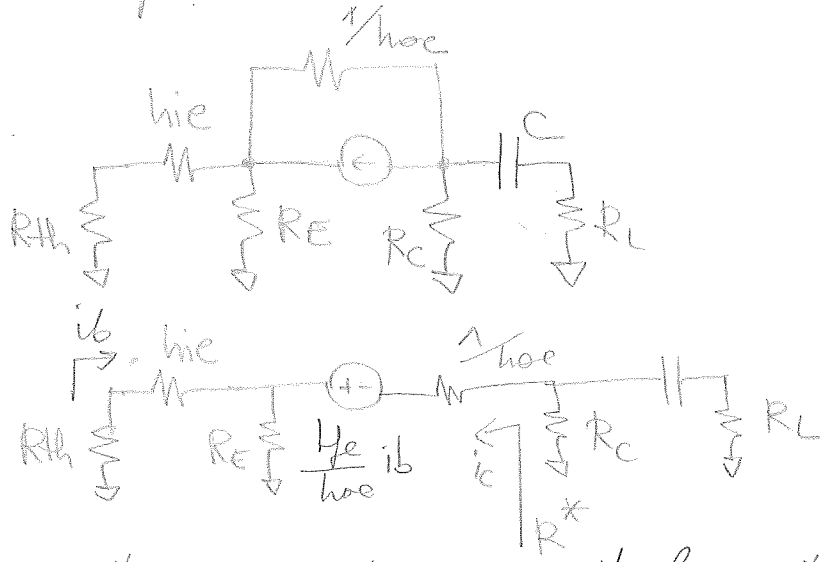 1/hoe
hie
C
Rth
RE
RC
RL
ib
hie
1/hoe
Rth
RE
hfe/hoe ib
ic
RC
RL
R*